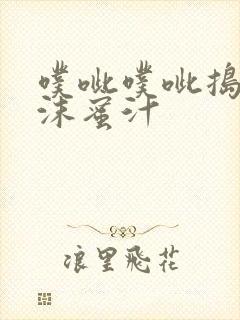 噗呲噗呲捣
沫蜜汁
浪里飛花